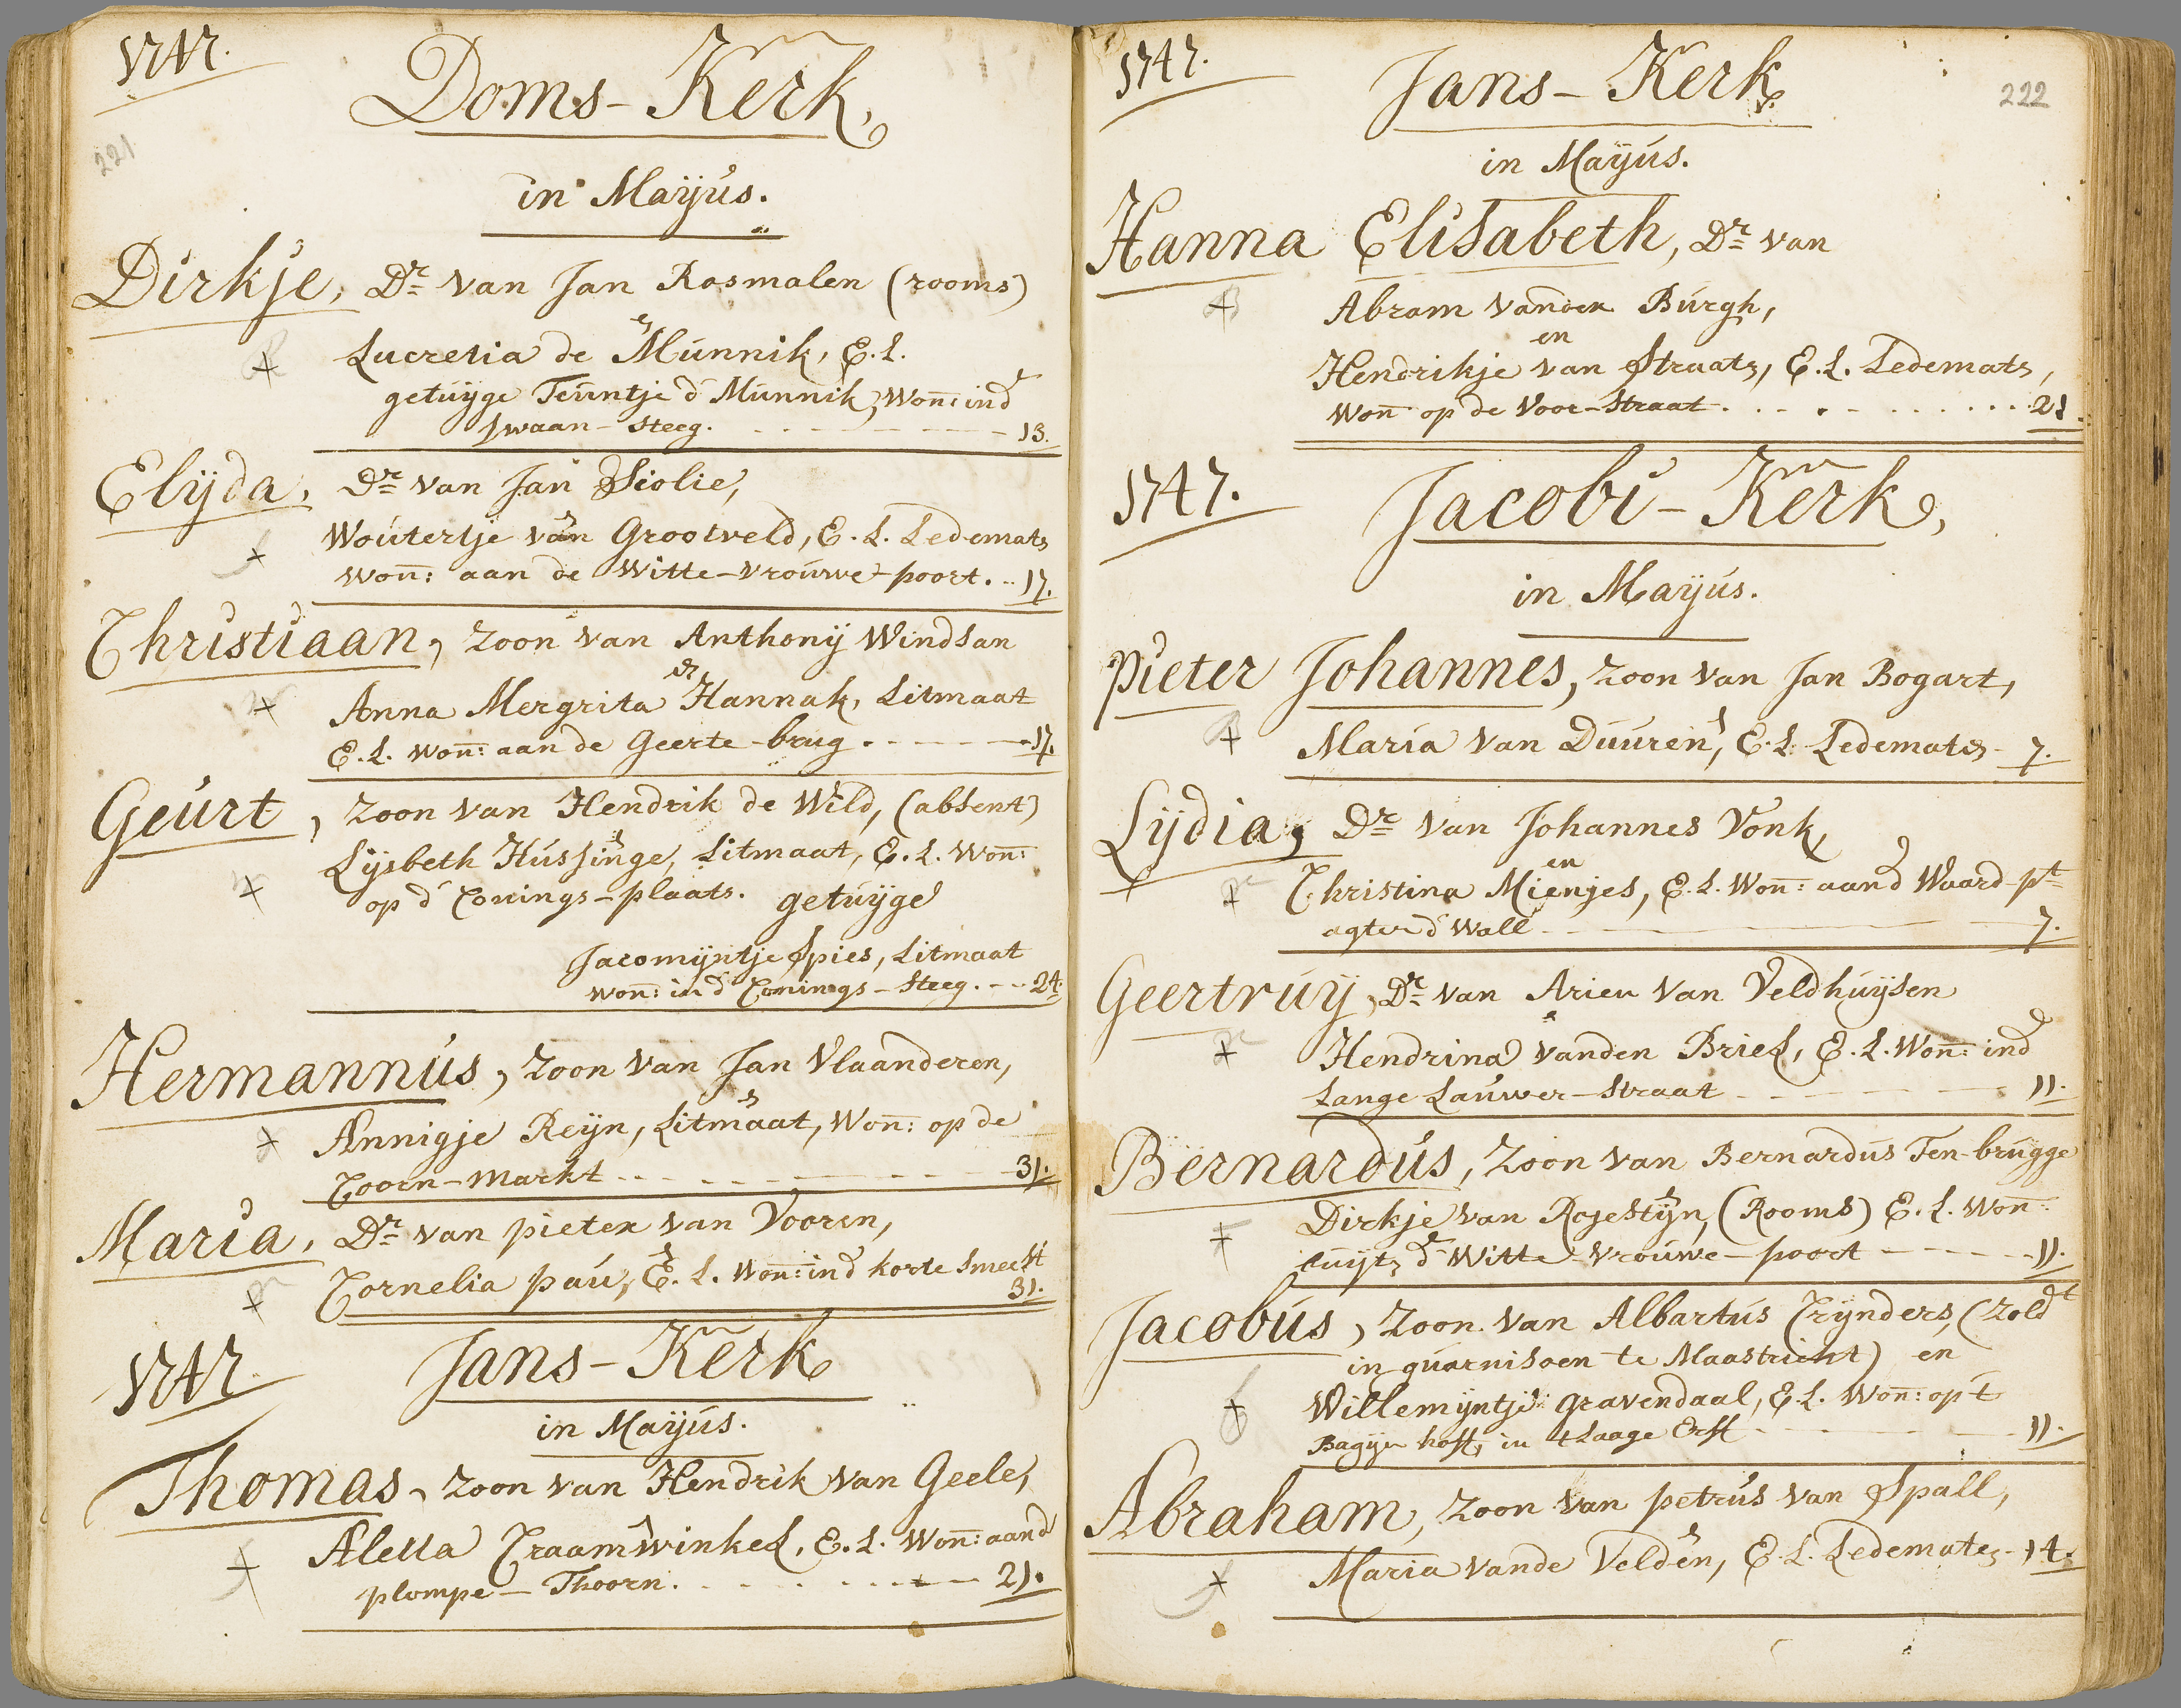 1747.
Doms-Kerk,
221
in Mayús.
Dirkje, Dr van Jan Rosmalen (rooms)
en
Lucretia de Múnnik, E.L.
getúyge Teúntje d' Múnnik, Won: ind
Swaan-Steeg. 13.
Elijda, Dr van Jan Siolie,
en
Woútertje van Grootveld, E.L. Ledemats
Won: aan de Witte-Vroúwe-poort. 17.
Christiaan, Zoon van Anthonij Windsan
en
Anna Mergrita Hannak, Litmaat
E.L. Won: aan de Geerte-brug 17.
Geúrt, Zoon van Hendrik de Wild, (absent)
en
Lijsbeth Hússinge, Litmaat, E.L. Won:
op d' Conings-plaats. getúyge
Jacomijntje Spies, Litmaat
Won: in d' Conings-Steeg. 24.
Hermannús, Zoon van Jan Vlaanderen,
en
Annigje Reijn, Litmaat, Won: op de
Coorn-markt 31.
Maria, Dr van pieter van Vooren,
en
Cornelia paú, E.L. Won: ind korte Smeest
31.
1747.
Jans-Kerk
in Mayús.
Thomas, Zoon van Hendrik van Geele,
en
Aletta Craamwinkel, E.L. Won: aand
plompe-Thoorn. 21.
1747.
Jans-Kerk
222
in Mayús.
Hanna Elisabeth, Dr van
Abram vanden Búrgh,
en
Hendrikje van Straats, E.L. Ledemats,
Won op de Voor-Straat 21.
1747.
Jacobi-Kerk,
in Mayús.
Pieter Johannes, Zoon van Jan Bogart,
en
Maria van Dúúren, E.L. Ledemats 7.
Lijdia, Dr van Johannes Vonk,
en
Christina Mienjes, E.L. Won: aand Waard-pt
agter d' Wall 7.
Geertrúy, Dr van Arien van Veldhúijsen
Hendrina vanden Briel, E.L. Won: ind
Lange Laúwer-Straat 11.
Bernardús, Zoon van Bernardús Ten-brúgge
en
Dirkje van Rogestijn, (Rooms) E.L. Won:
búijt d' Witte-Vroúwe-poort 11.
Jacobús, Zoon van Albartús Crijnders, (Zoldt
in gúarnisoen te Maastricht) en
Willemijntje gravendaal, E.L. Won: op 't
Bagijn hoff, in 't Laage Erff 11.
Abraham, Zoon van petrús van Spall,
en
Maria vande Velden, E.L. Ledemats 14.